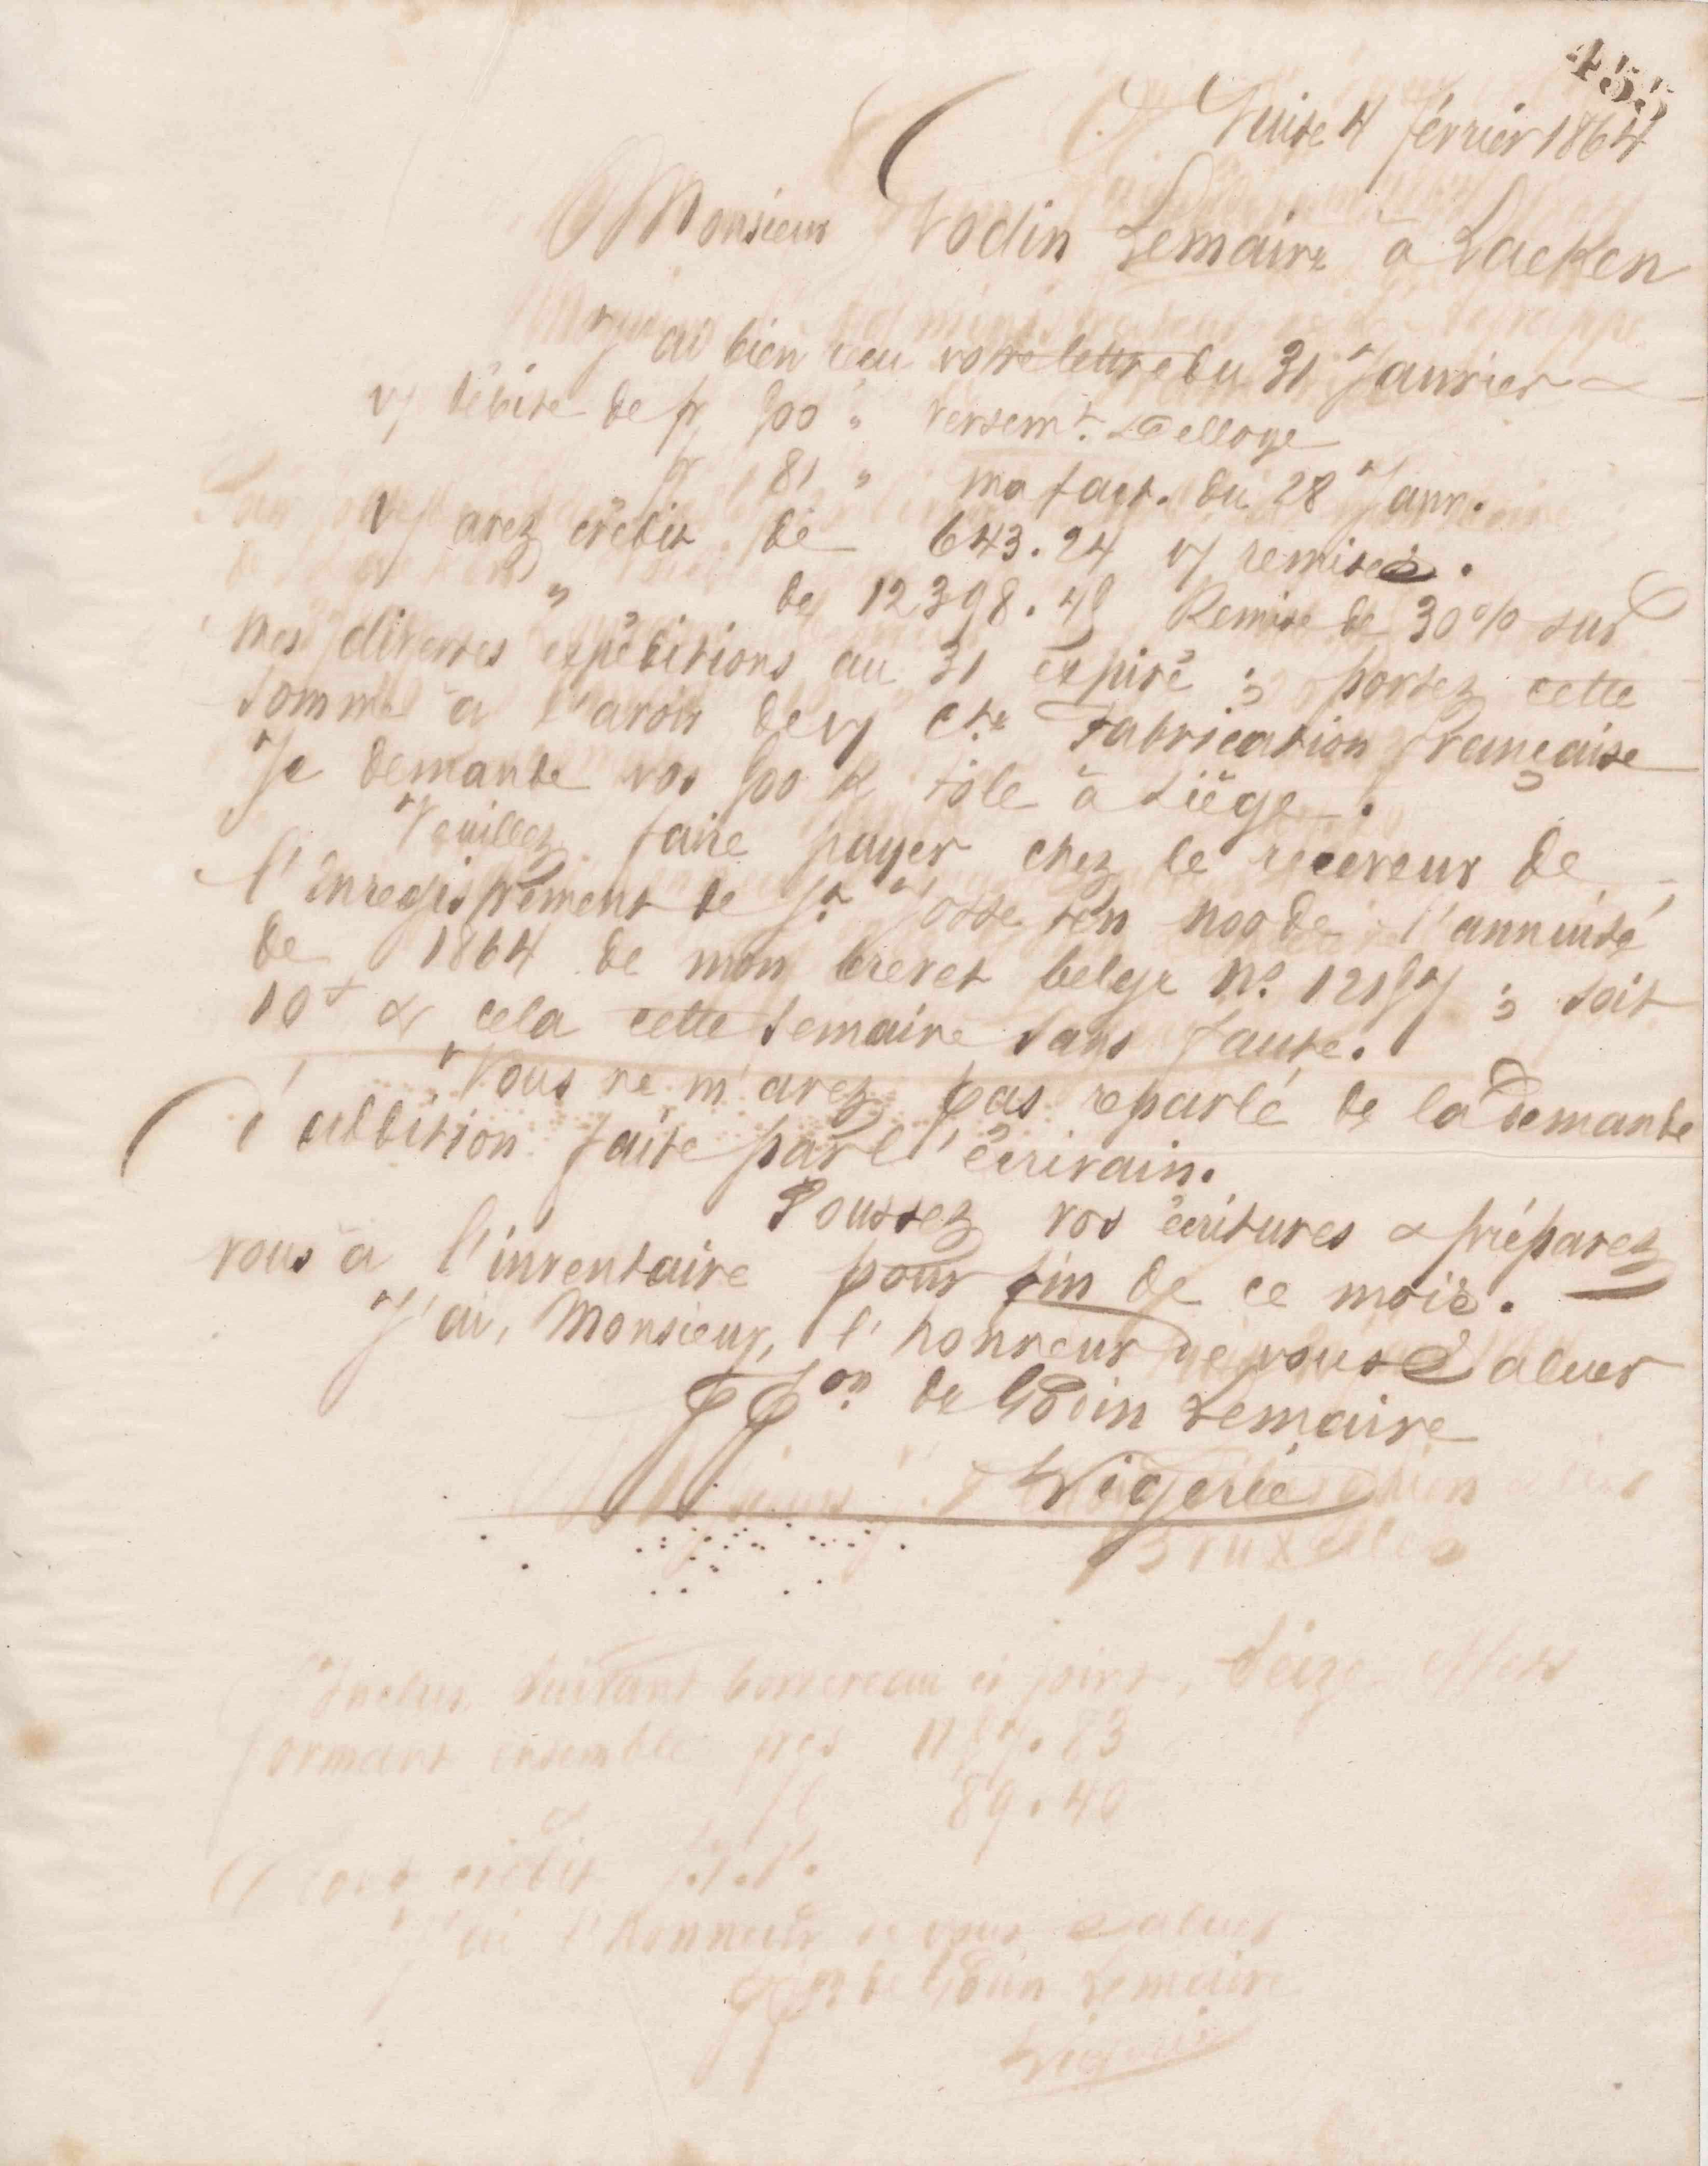 455
Guise 4 février 1864
Monsieur Godin Lemaire à Laeken
J'ai bien reçu votre lettre du 31 Janvier &
v/ débite de fr 500 " versemt. Delloye
fr 81 " ma fact. du 28 Janv.
V/ avez crédit de 643.24 v/ remises.
" de 12398.49 Remise de 30% sur
mes diverses expéditions au 31 expiré ; portez cette
somme à l'avoir de v/ cte Fabrication française
Je demande vos 500 K tôle à Liège.
Veuillez faire payer chez le receveur de
l'Enregistrement de St Josse ten noode l'annuité
de 1864 de mon brevet belge No. 12157 ; soit
10f & cela cette semaine sans faute.
Vous ne m'avez pas reparlé de la demande
d'addition faite par l'écrivain.
Poussez vos écritures & préparez
vous à l'inventaire pour fin de ce mois.
J'ai, Monsieur, l'honneur de vous saluer
PPon de Godin Lemaire
Vigerie
Bruxelles
Inclus, suivant bordereau ci joint, Seize effets
formant ensemble
89.40
crédit S.B.P.
J'ai l'honneur de vous saluer
PPon de Godin Lemaire
Vigerie